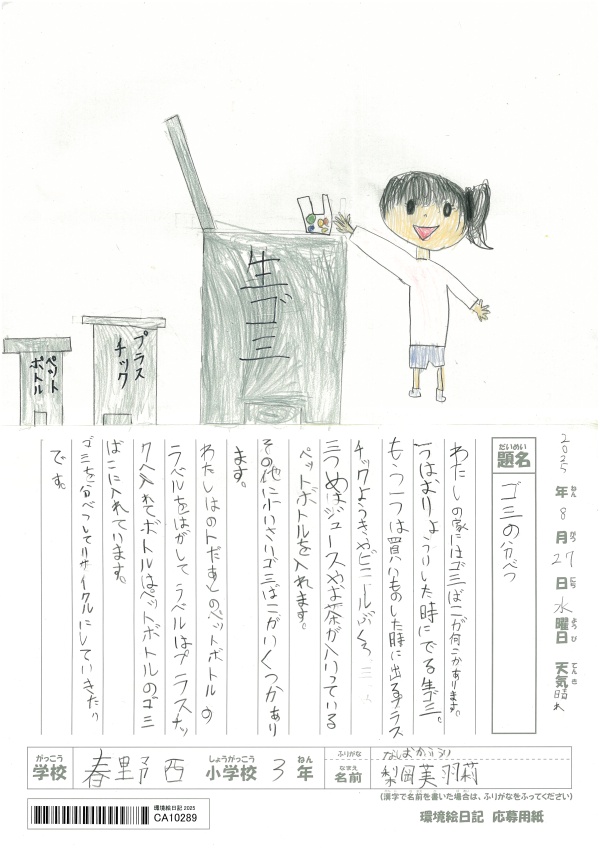 生ゴミ
プラスチック
ペットボトル
2025年8月27日水曜日 天気晴れ
ねん
がつ
にち
ようび
てんき
だいめい
題名
ゴミの分べつ
わたしの家にはゴミばこが何こかあります。
一つはおりょうりした時にでる生ゴミ。
もう一つは買いものした時に出るプラス
チックようきやビニールぶくろ。
三つめはジュースやお茶が入っている
ペットボトルを入れます。
その他に小いさいゴミばこがいくつかあり
ます。
わたしはのトだあしのペットボトルの
ラベルをはがしてラベルはプラスチッ
クへ入れてボトルはペットボトルのゴミ
ばこに入れています。
ゴミを分べつしてリサイクルにしていきたい
です。
がっこう
学校
春野西
しょうがっこう
小学校
3
ねん
年
ふりがな
なまえ
名前
梨岡芙羽莉
(漢字で名前を書いた場合は、ふりがなをふってください)
環境絵日記 2025
CA10289
環境絵日記 応募用紙